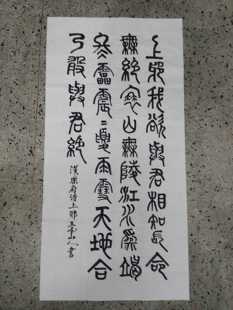 上邪我欲與君相知長命
無絕衰山無陵江水為竭
冬靁震〻夏雨雪天地合
乃敢與君絕
漢樂府詩上邪 山人書